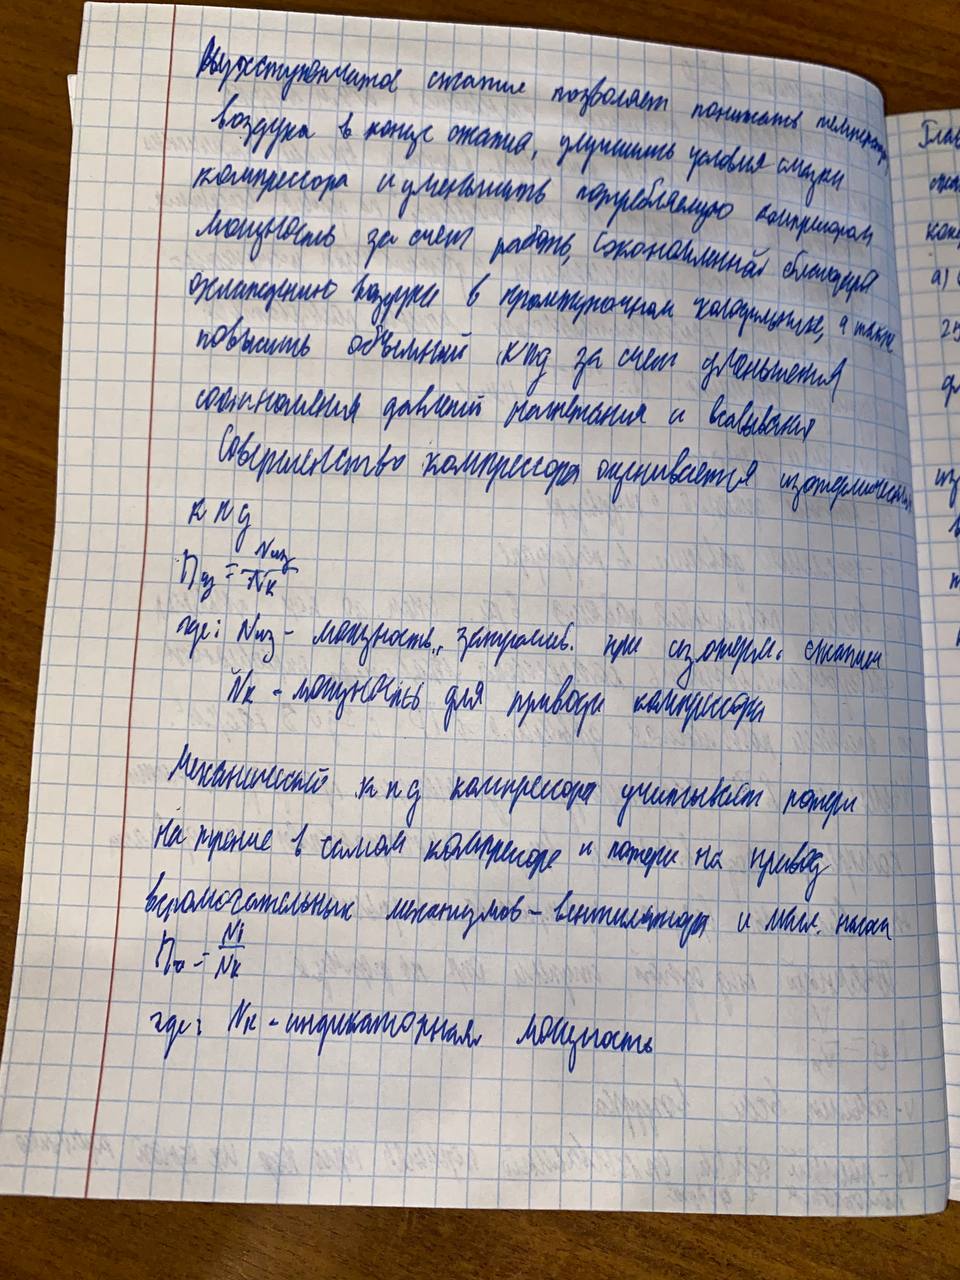 Двухступенчатое сжатие позволяет понижать температуру
воздуха в конце сжатия, улучшить условия смазки
компрессора и уменьшить потребляемую компрессором
мощность за счет работы, сэкономленной благодаря
охлаждению воздуха в промежуточном холодильнике, а также
повысить объемный кпд за счет уменьшения
соотношения давлений нагнетания и всасывания
Совершенство компрессора оценивается изотермическим
кпд
ηиз = Nиз/Nк
где: Nиз - мощность, затрачив. при изотерм. сжатии
Nк - мощность для привода компрессора
Механический кпд компрессора учитывает потери
на трение в самом компрессоре и потери на привод
вспомогательных механизмов - вентилятора и масл. насоса
= Ni/Nк
где: Nк - индикаторная мощность
Глав
а)
25
из
в